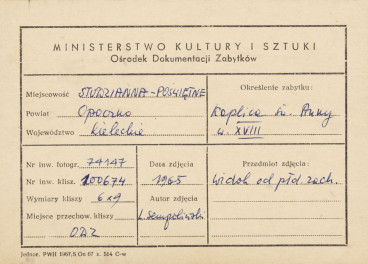 MINISTERSTWO KULTURY I SZTUKI
Ośrodek Dokumentacji Zabytków
Miejscowość STUDZIANNA-POŚWIĘTNE
Powiat Opoczno
Województwo kieleckie
Określenie zabytku:
Kaplica św. Anny
w. XVIII
Nr inw. fotogr. 74147
Nr inw. klisz. 100674
Wymiary kliszy 6x9
Miejsce przechow. kliszy
ODZ
Data zdjęcia
1965
Autor zdjęcia
Ł. Sempoliński
Przedmiot zdjęcia:
widok od płd. zach.
Jednor. PWH 1967, S On 67 z. 514 C-w